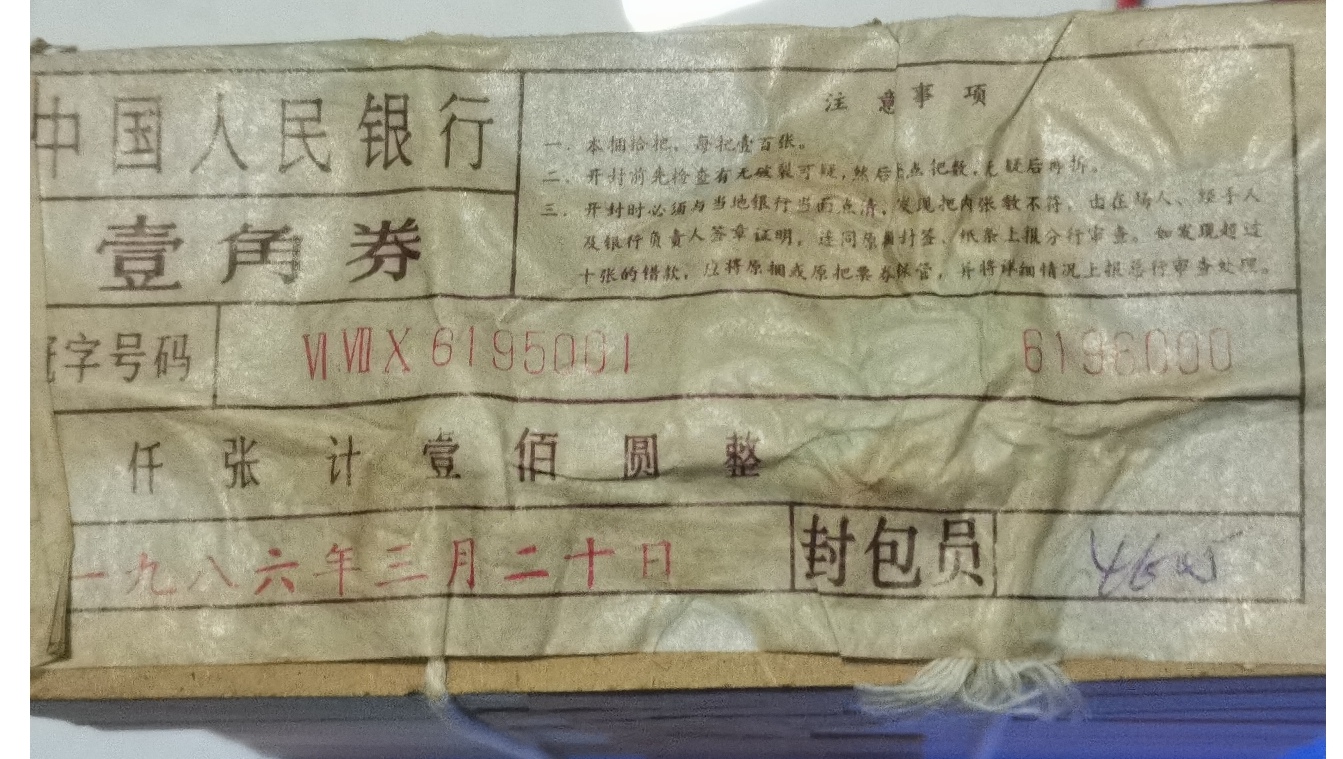 中国人民银行
壹角券
注意事项
一．本捆拾把，每把壹百张。
二．开封前先检查有无破裂可疑，然后点把数，无疑后再拆。
三．开封时必须与当地银行当面点清，发现把内张数不符，由在场人、经手人
及银行负责人签章证明，连同原封签、纸条上报分行审查。如发现超过
十张的错款，应将原捆或原把票券保管，并将详细情况上报总行审查处理。
字号码 ⅥⅦX6195001 6196000
仟张计壹佰圆整
一九八六年三月二十日 封包员